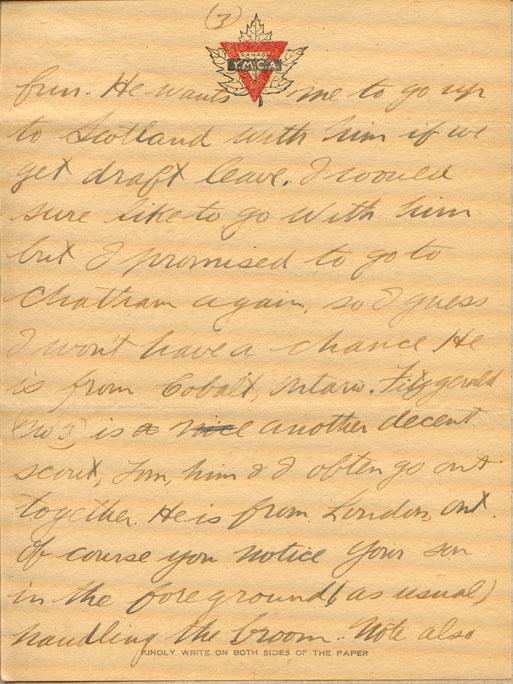 (3)
CANADA
Y.M.C.A.
fun. He wants me to go up
to Scotland with him if we
get draft leave. I would
sure like to go with him
but I promised to go to
Chatham again, so I guess
I won't have a chance. He
is from Cobalt, Ontario. Fitzgerald
(No 3) is a nice another decent
scout, Tom, him & I often go out
together. He is from London, Ont.
Of course you notice your son
in the foreground (as usual)
handling the broom. Note also
KINDLY WRITE ON BOTH SIDES OF THE PAPER